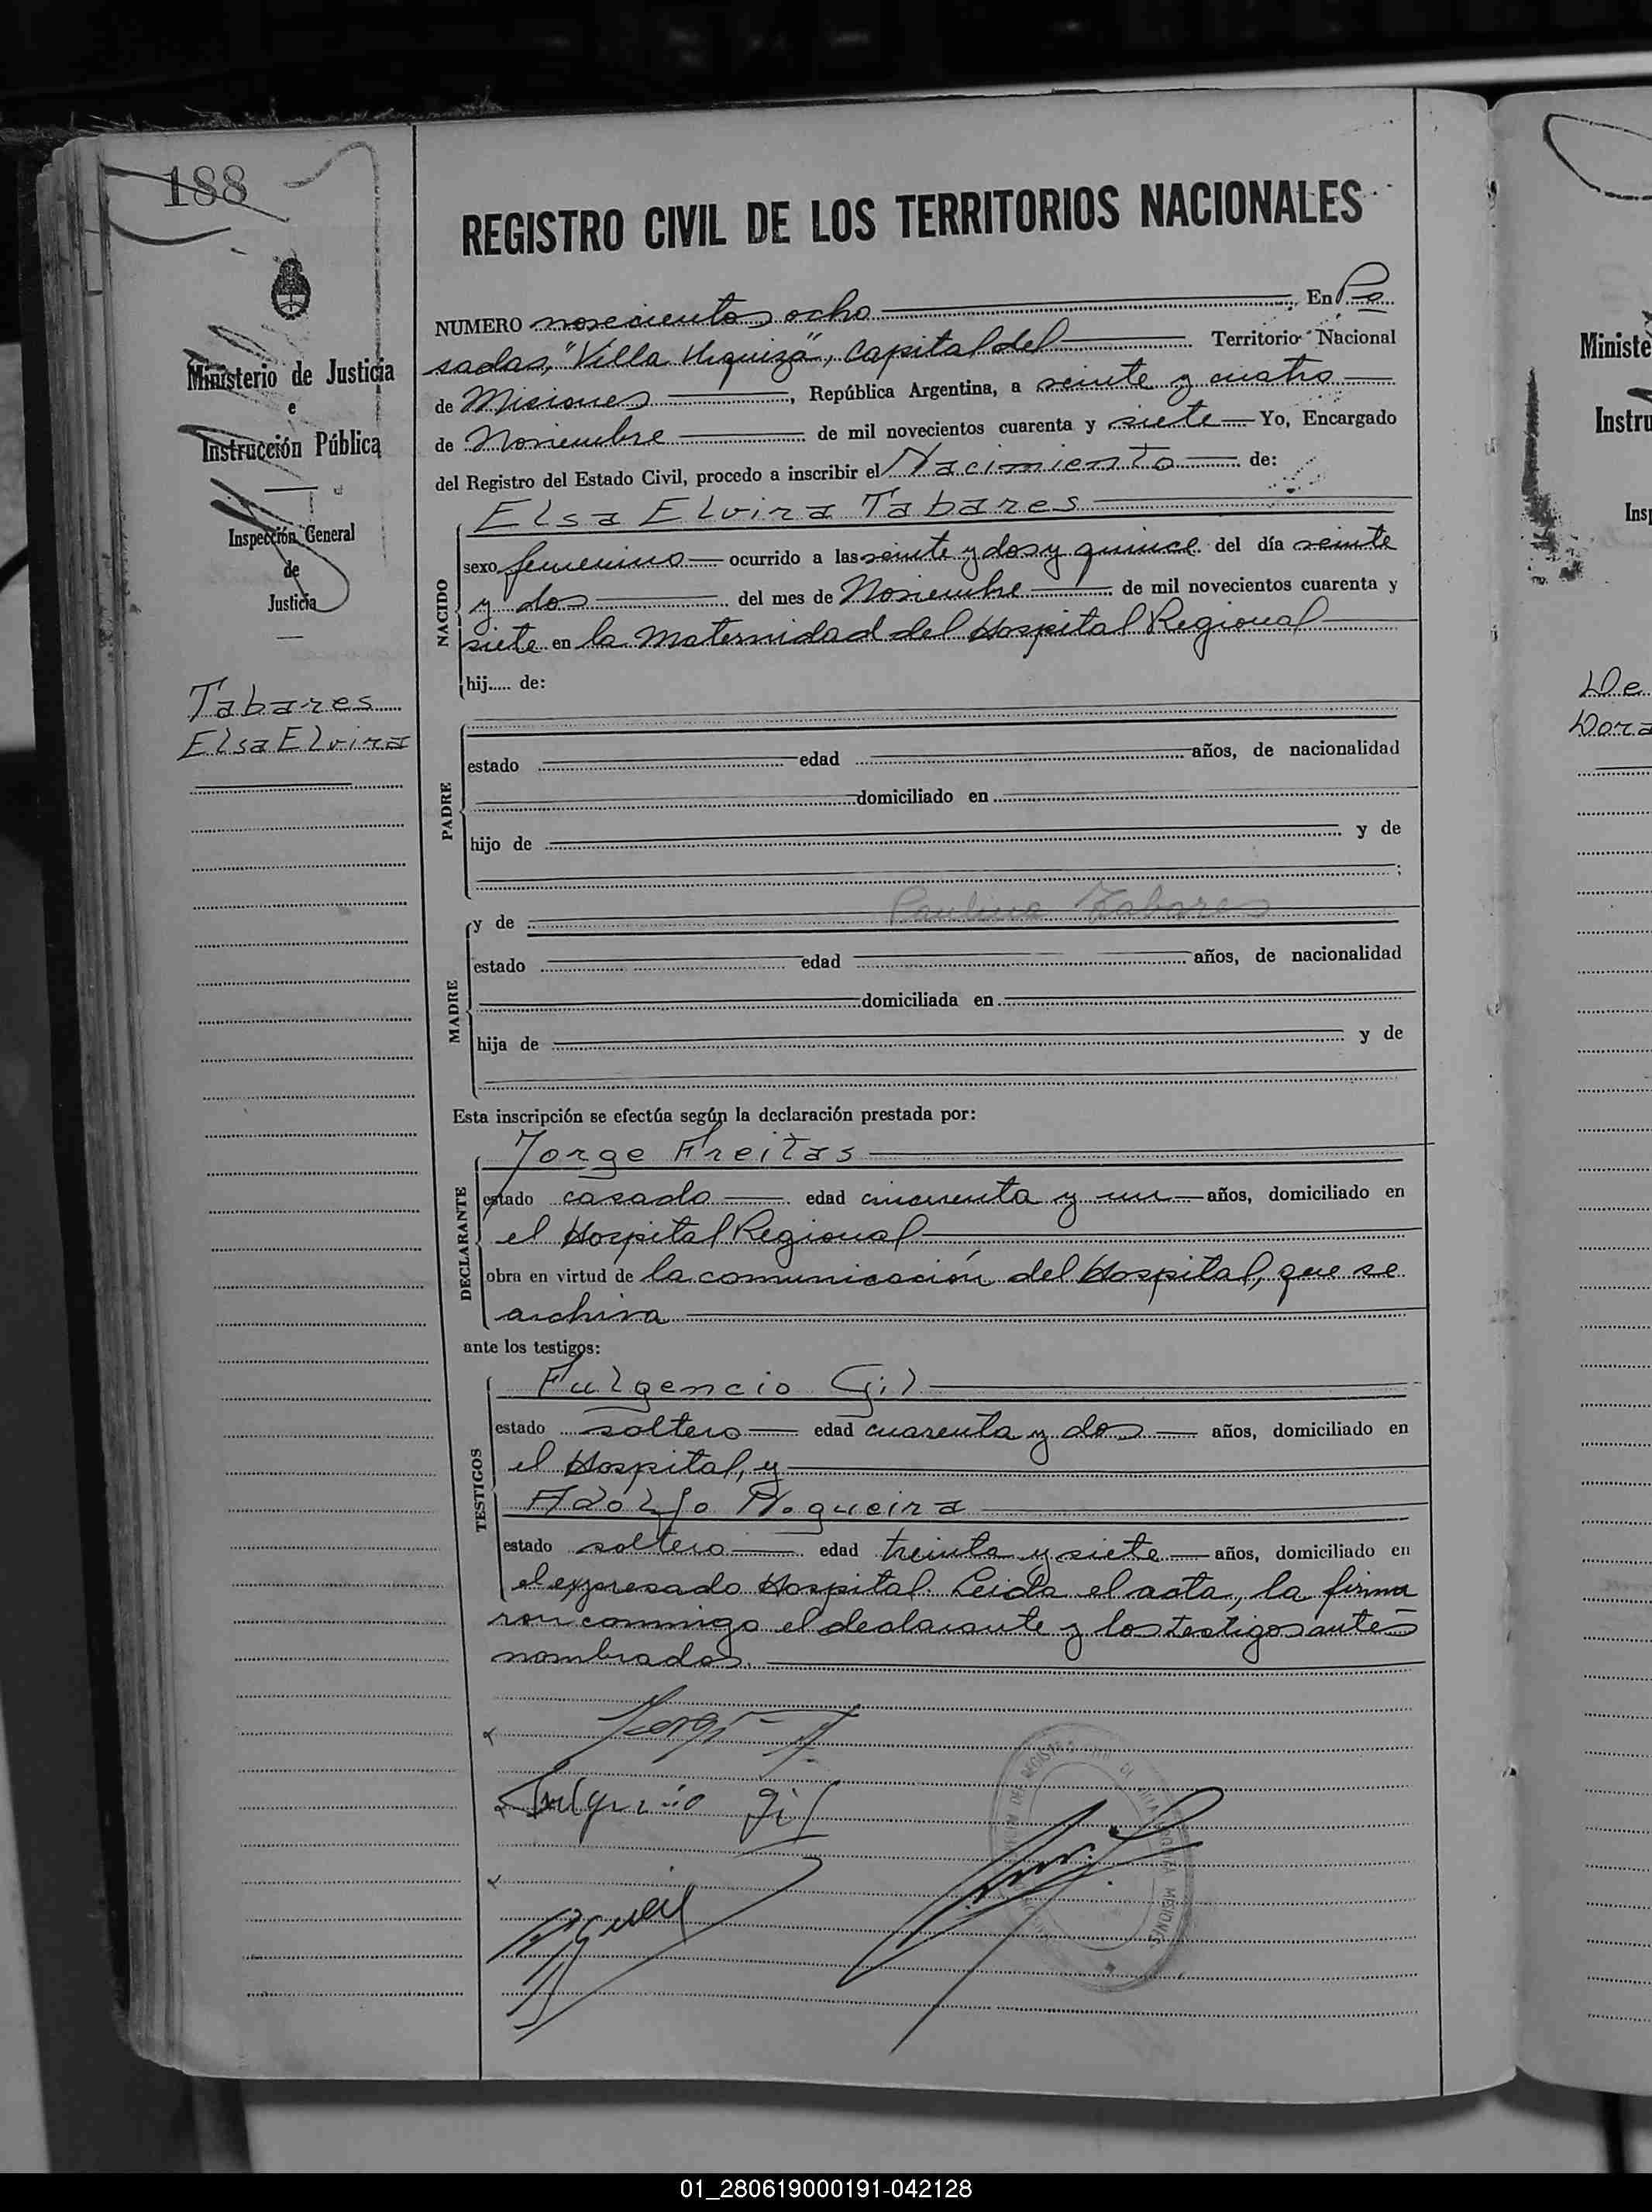 188
Ministerio de Justicia
e
Instrucción Pública
Inspección General
de
Justicia
Tabares
Elsa Elvira
REGISTRO CIVIL DE LOS TERRITORIOS NACIONALES
NUMERO novecientos ocho En Po
sadas, "Villa Urquiza", Capital del Territorio Nacional
de Misiones, República Argentina, a veinte y cuatro
de Noviembre de mil novecientos cuarenta y siete Yo, Encargado
del Registro del Estado Civil, procedo a inscribir el Nacimiento de:
NACIDO
Elsa Elvira Tabares
sexo femenino ocurrido a las veinte y dos y quince del día veinte
y dos del mes de Noviembre de mil novecientos cuarenta y
siete en la Maternidad del Hospital Regional
hij..... de:
PADRE
estado edad años, de nacionalidad
domiciliado en
hijo de y de
;
MADRE
y de Paulina Tabares
estado edad años, de nacionalidad
domiciliada en
hija de y de
Esta inscripción se efectúa según la declaración prestada por:
DECLARANTE
Jorge Freitas
estado casado edad cincuenta y un años, domiciliado en
el Hospital Regional
obra en virtud de la comunicación del Hospital, que se
archiva
ante los testigos:
TESTIGOS
Fulgencio Gil
estado soltero edad cuarenta y dos años, domiciliado en
el Hospital, y
Adolfo Nogueira
estado soltero edad treinta y siete años, domiciliado en
el expresado Hospital. Leida el acta, la firma
ron conmigo el declarante y los testigos antes
nombrados.
Fulgencio Gil
MISIONES
Ministe
Instru
Insp
De
Dora
01_280619000191-042128